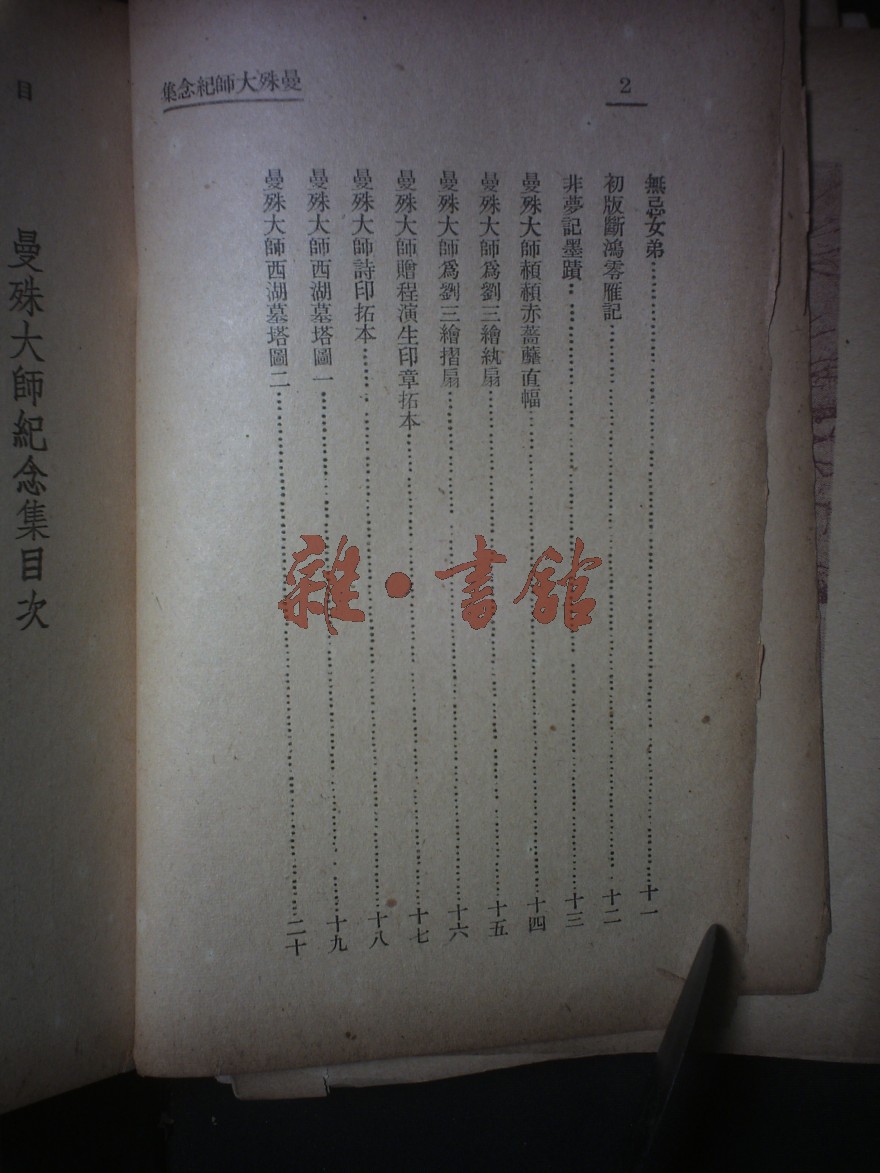 曼殊大師紀念集
2
無忌女弟……十一
初版斷鴻零雁記……十二
非夢記墨蹟……十三
曼殊大師頳頳赤薔蘼直幅……十四
曼殊大師爲劉三繪紈扇……十五
曼殊大師爲劉三繪摺扇……十六
曼殊大師贈程演生印章拓本……十七
曼殊大師詩印拓本……十八
曼殊大師西湖墓塔圖一……十九
曼殊大師西湖墓塔圖二……二十
目
曼殊大師紀念集目次
雜·書館